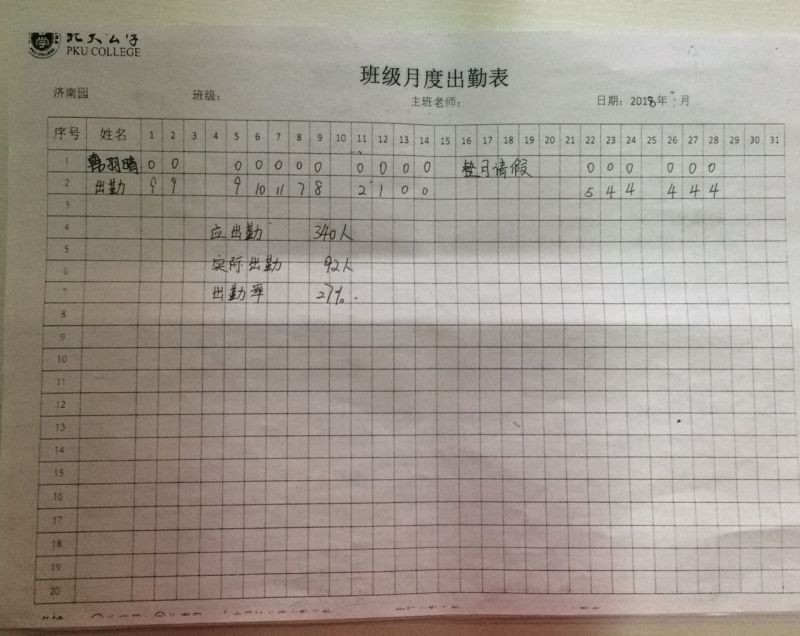 北大公学
PKU COLLEGE
班级月度出勤表
济南园 班级: 主班老师: 日期: 2018年 月
序号 姓名 1 2 3 4 5 6 7 8 9 10 11 12 13 14 15 16 17 18 19 20 21 22 23 24 25 26 27 28 29 30 31
1 韩羽晴 0 0 0 0 0 0 0 0 0 0 0 整月请假 0 0 0 0 0 0
2 出勤 9 9 9 10 11 7 8 2 1 0 0 5 4 4 4 4 4
3
4 应出勤 340人
5
6 实际出勤 92人
7 出勤率 27%.
8
9
10
11
12
13
14
15
16
17
18
19
20